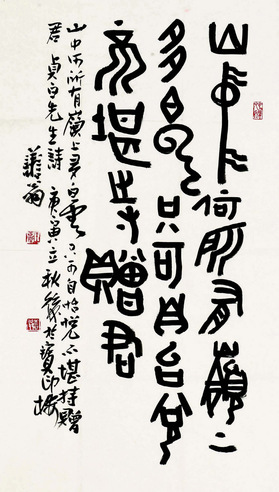 山中何所有嶺上
多白云只可自台兌
不堪寺贈君
山中何所有嶺上多白雲只可自怡悅不堪持贈
君貞白先生詩庚寅立秋後於寶印
翁